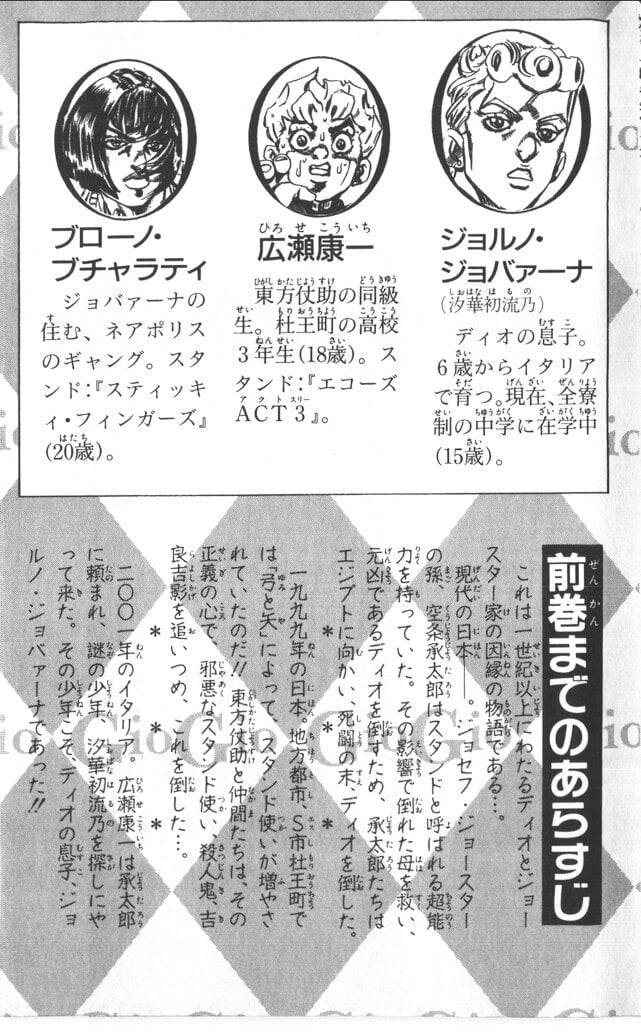 ジョルノ・
ジョバァーナ
(汐華初流乃)
ディオの息子。
6歳からイタリア
で育つ。現在、全寮
制の中学に在学中
(15歳)。
広瀬康一
東方仗助の同級
生。杜王町の高校
3年生(18歳)。ス
タンド:『エコーズ
ACT3』。
ブローノ・
ブチャラティ
ジョバァーナの
住む、ネアポリス
のギャング。スタ
ンド:『スティッキ
ィ・フィンガーズ』
(20歳)。
前巻までのあらすじ
これは一世紀以上にわたるディオとジョー
スター家の因縁の物語である…。
現代の日本――。ジョセフ・ジョースター
の孫、空条承太郎はスタンドと呼ばれる超能
力を持っていた。その影響で倒れた母を救い、
元凶であるディオを倒すため、承太郎たちは
エジプトに向かい、死闘の末、ディオを倒した。
＊　＊　＊
一九九九年の日本。地方都市、S市杜王町で
は「弓と矢」によって、スタンド使いが増やさ
れていたのだ!! 東方仗助と仲間たちは、その
正義の心で、邪悪なスタンド使い、殺人鬼、吉
良吉影を追いつめ、これを倒した…。
＊　＊　＊
二〇〇一年のイタリア。広瀬康一は承太郎
に頼まれ、謎の少年、汐華初流乃を探しにや
って来た。その少年こそ、ディオの息子、ジョ
ルノ・ジョバァーナであった!!
GioGio